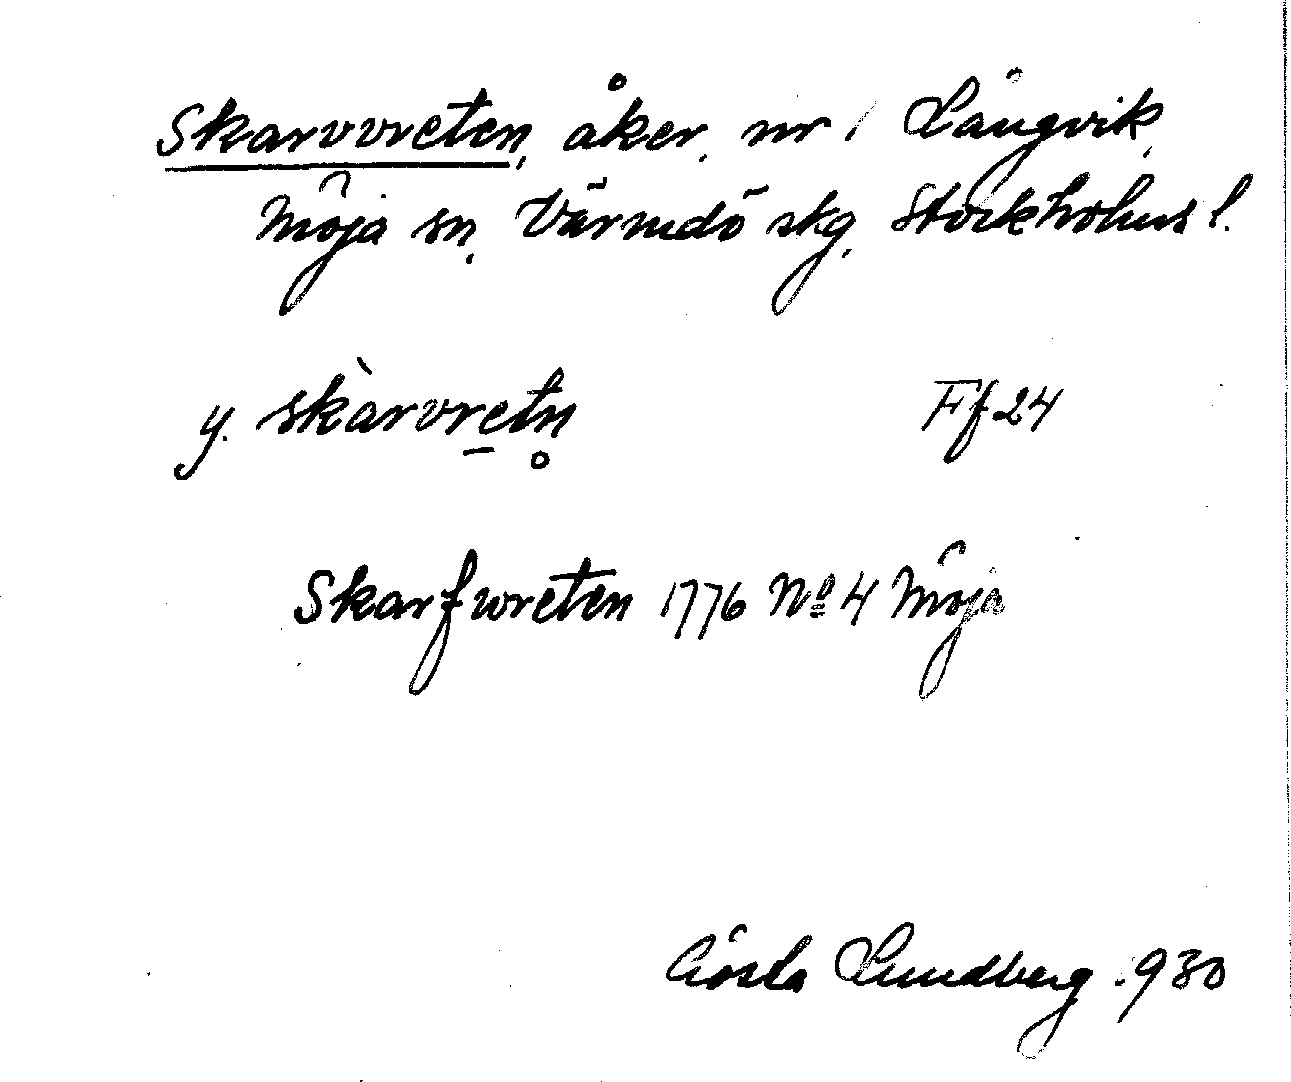 Skarvvreten, åker, nr 1 Långvik,
Möja sn, Värmdö skg, Stockholms l.
y. skàrvretn Ff 24
Skarfwreten 1776 No 4 Möja
Gösta Lundberg 1930